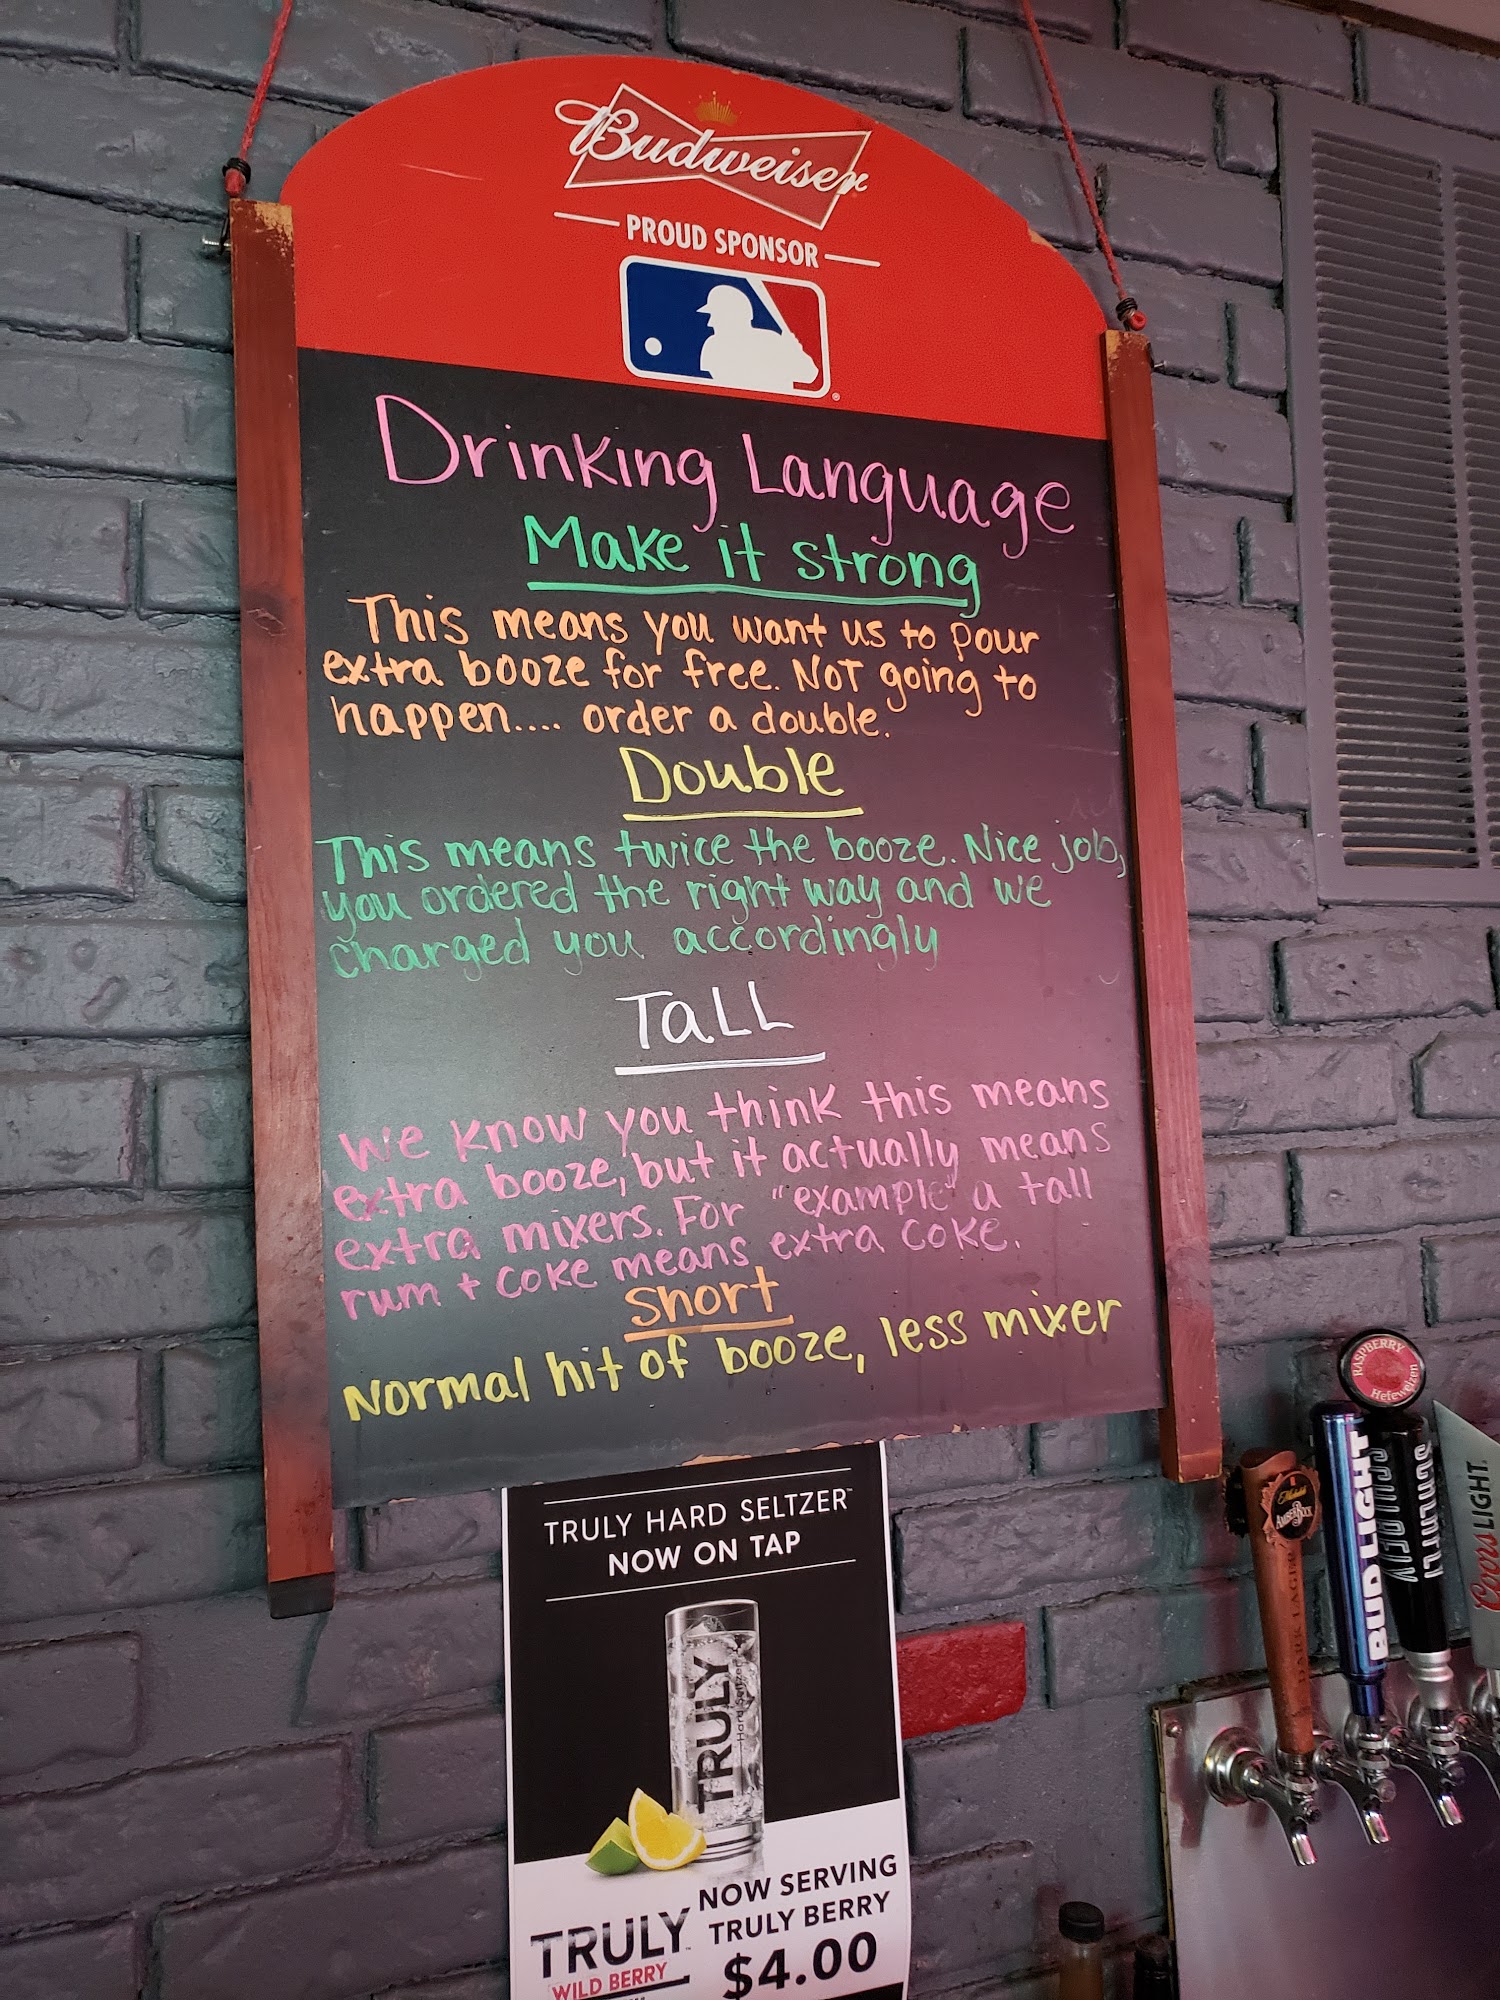 Budweiser
PROUD SPONSOR
Drinking Language
Make it strong
This means you want us to pour
extra booze for free. NOT going to
happen.... order a double.
Double
This means twice the booze. Nice job,
you ordered the right way and we
charged you accordingly
TALL
We know you think this means
extra booze, but it actually means
extra mixers. For "example" a tall
rum + coke means extra coke.
Short
Normal hit of booze, less mixer
TRULY HARD SELTZER
NOW ON TAP
TRULY
Hard Seltzer
NOW SERVING
TRULY BERRY
$4.00
TRULY
WILD BERRY
RASPBERRY
Hefeweizen
AMBER BOCK
DARK LAGER
BUD LIGHT
Coors LIGHT